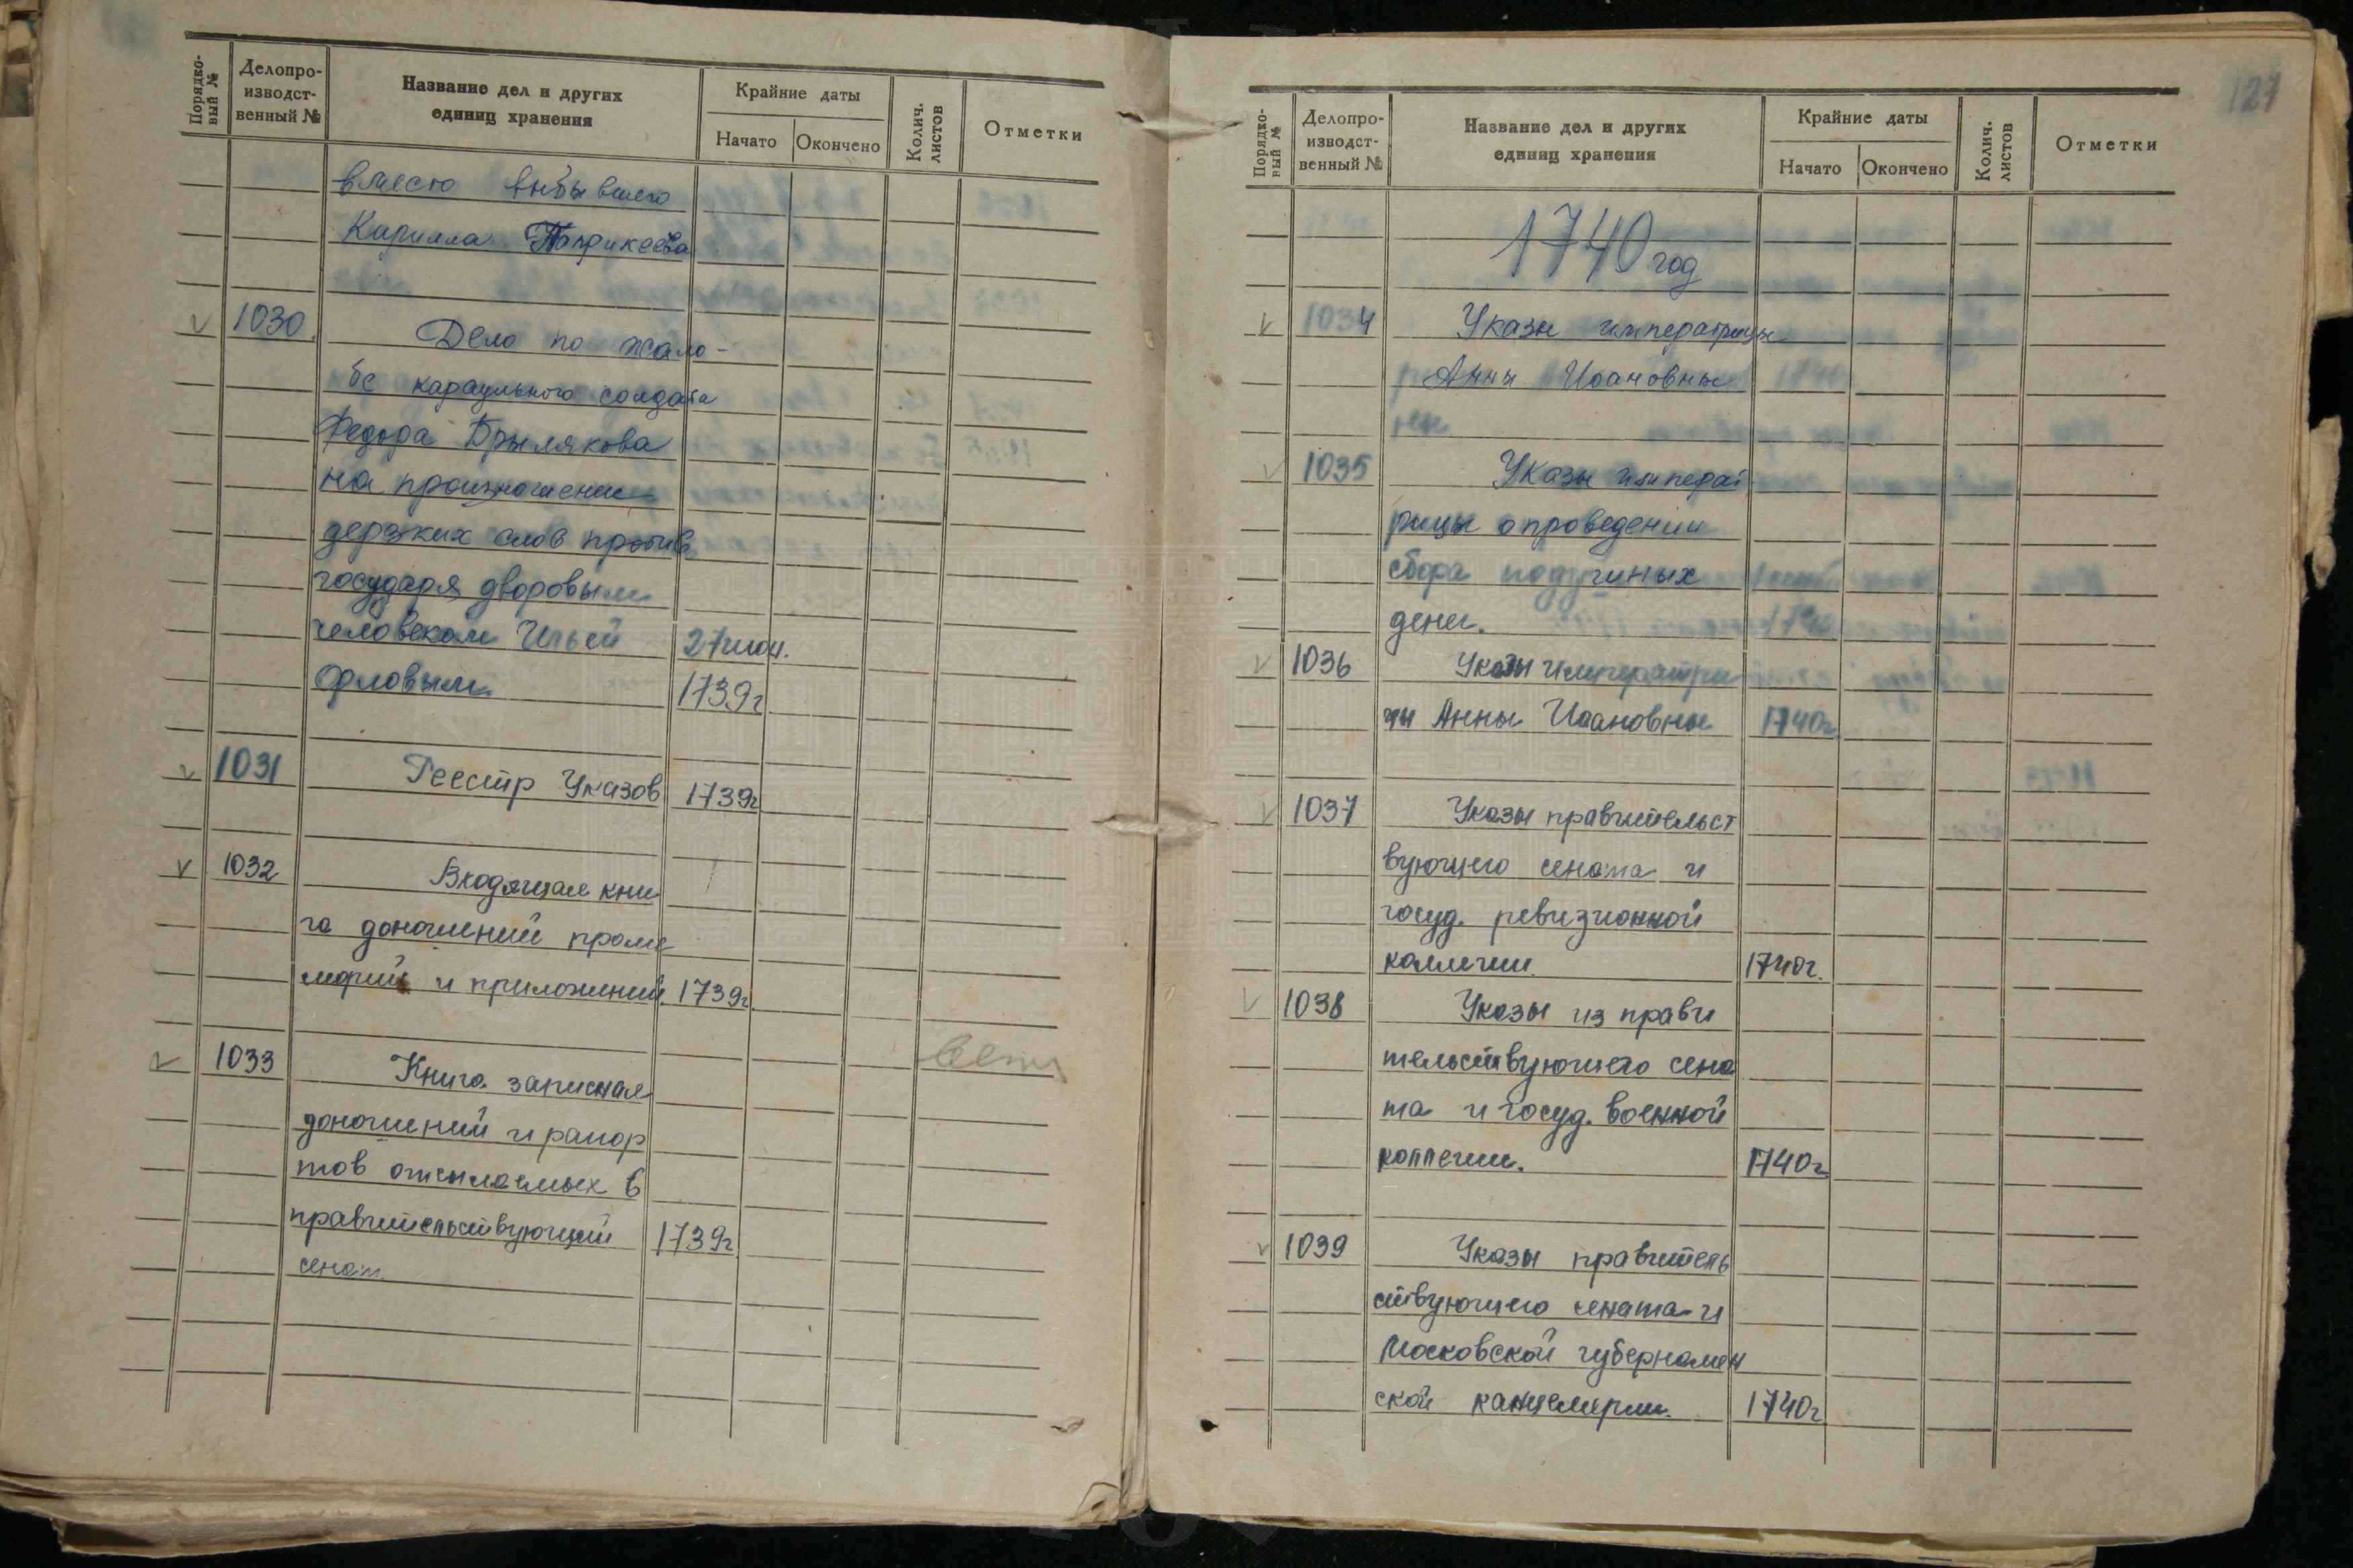 Порядко-
вый №
Делопро-
изводст-
венный №
Название дел и других
единиц хранения
Крайние даты
Начато
Окончено
Колич.
листов
Отметки
вместо выбывшего
Карилла Патрикеева
V 1030 Дело по жало-
бе караульного солдата
Федора Брылякова
на произношение
дерзких слов против
государя дворовым
человеком Ильей 27 июн.
Орловым 1739г
V 1031 Реестр Указов 1739г
V 1032 Входящая кни
га доношений проме
морий и приложений 1739г
V 1033 Книга записная
доношений и рапор
тов отсылаемых в
правительствующий 1739г
сенат
127
Порядко-
вый №
Делопро-
изводст-
венный №
Название дел и других
единиц хранения
Крайние даты
Начато
Окончено
Колич.
листов
Отметки
1740 год
V 1034 Указы императрицы
Анны Иоановны
V 1035 Указы императ
рицы о проведении
сбора подушных
денег.
V 1036 Указы императри
цы Анны Иоановны 1740г
V 1037 Указы правительст
вующего сената и
госуд. ревизионной
коллегии 1740г.
V 1038 Указы из прави
тельствующего сена
та и госуд. военной
коллегии. 1740г
V 1039 Указы правитель
ствующего сената и
Московской губернамен
ской канцелярии. 1740г